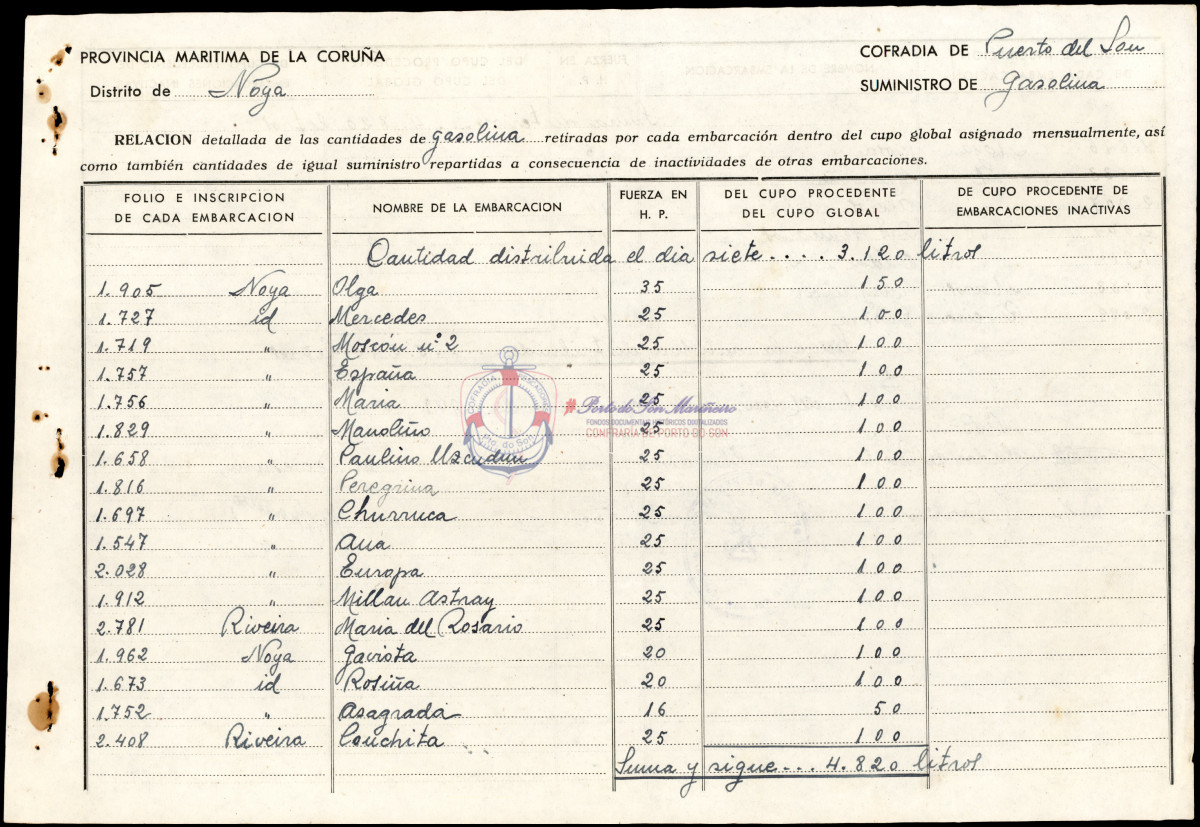 PROVINCIA MARITIMA DE LA CORUÑA
COFRADIA DE Puerto del Son
Distrito de Noya
SUMINISTRO DE Gasolina
RELACION detallada de las cantidades de gasolina retiradas por cada embarcación dentro del cupo global asignado mensualmente, así
como también cantidades de igual suministro repartidas a consecuencia de inactividades de otras embarcaciones.
FOLIO E INSCRIPCION DE CADA EMBARCACION NOMBRE DE LA EMBARCACION FUERZA EN H. P. DEL CUPO PROCEDENTE DEL CUPO GLOBAL DE CUPO PROCEDENTE DE EMBARCACIONES INACTIVAS
Cantidad distribuida el dia siete.... 3.120 litros
1.905 Noya Olga 35 150
1.727 id Mercedes 25 100
1.719 " Moscón nº 2 25 100
1.757 " España 25 100
1.756 " Maria 25 100
1.829 " Manoliño 25 100
1.658 " Paulino Uzcudun 25 100
1.816 " Peregrina 25 100
1.697 " Churruca 25 100
1.547 " Ana 25 100
2.028 " Europa 25 100
1.912 " Millan Astray 25 100
2.781 Riveira Maria del Rosario 25 100
1.962 Noya Gaviota 20 100
1.673 id Rosiña 20 100
1.752 " Asagrada 16 50
2.408 Riveira Conchita 25 100
Suma y sigue... 4.820 litros
COFRADÍA PESCADORES
Pto. do Son
# Porto do Son Mariñeiro
FONDOS DOCUMENTAIS HISTÓRICOS DIXITALIZADOS
CONFRARÍA DE PORTO DO SON